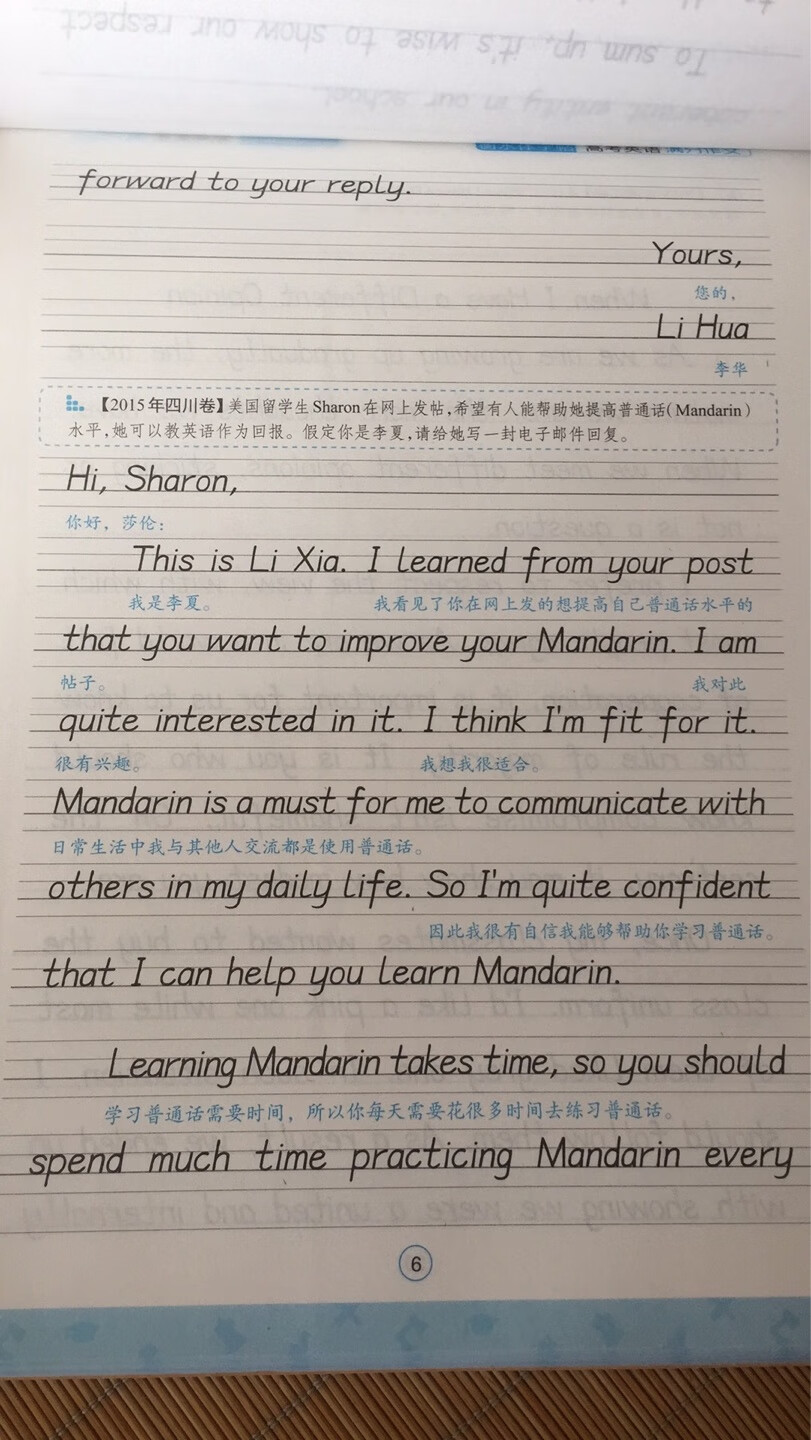 To sum up, it's wise to show our respect
forward to your reply.
Yours,
您的，
Li Hua
李华
【2015年四川卷】美国留学生Sharon在网上发帖，希望有人能帮助她提高普通话（Mandarin）
水平，她可以教英语作为回报。假定你是李夏，请给她写一封电子邮件回复。
Hi, Sharon,
你好，莎伦：
This is Li Xia. I learned from your post
我是李夏。 我看见了你在网上发的想提高自己普通话水平的
that you want to improve your Mandarin. I am
帖子。 我对此
quite interested in it. I think I'm fit for it.
很有兴趣。 我想我很适合。
Mandarin is a must for me to communicate with
日常生活中我与其他人交流都是使用普通话。
others in my daily life. So I'm quite confident
因此我很有自信我能够帮助你学习普通话。
that I can help you learn Mandarin.
Learning Mandarin takes time, so you should
学习普通话需要时间，所以你每天需要花很多时间去练习普通话。
spend much time practicing Mandarin every
6